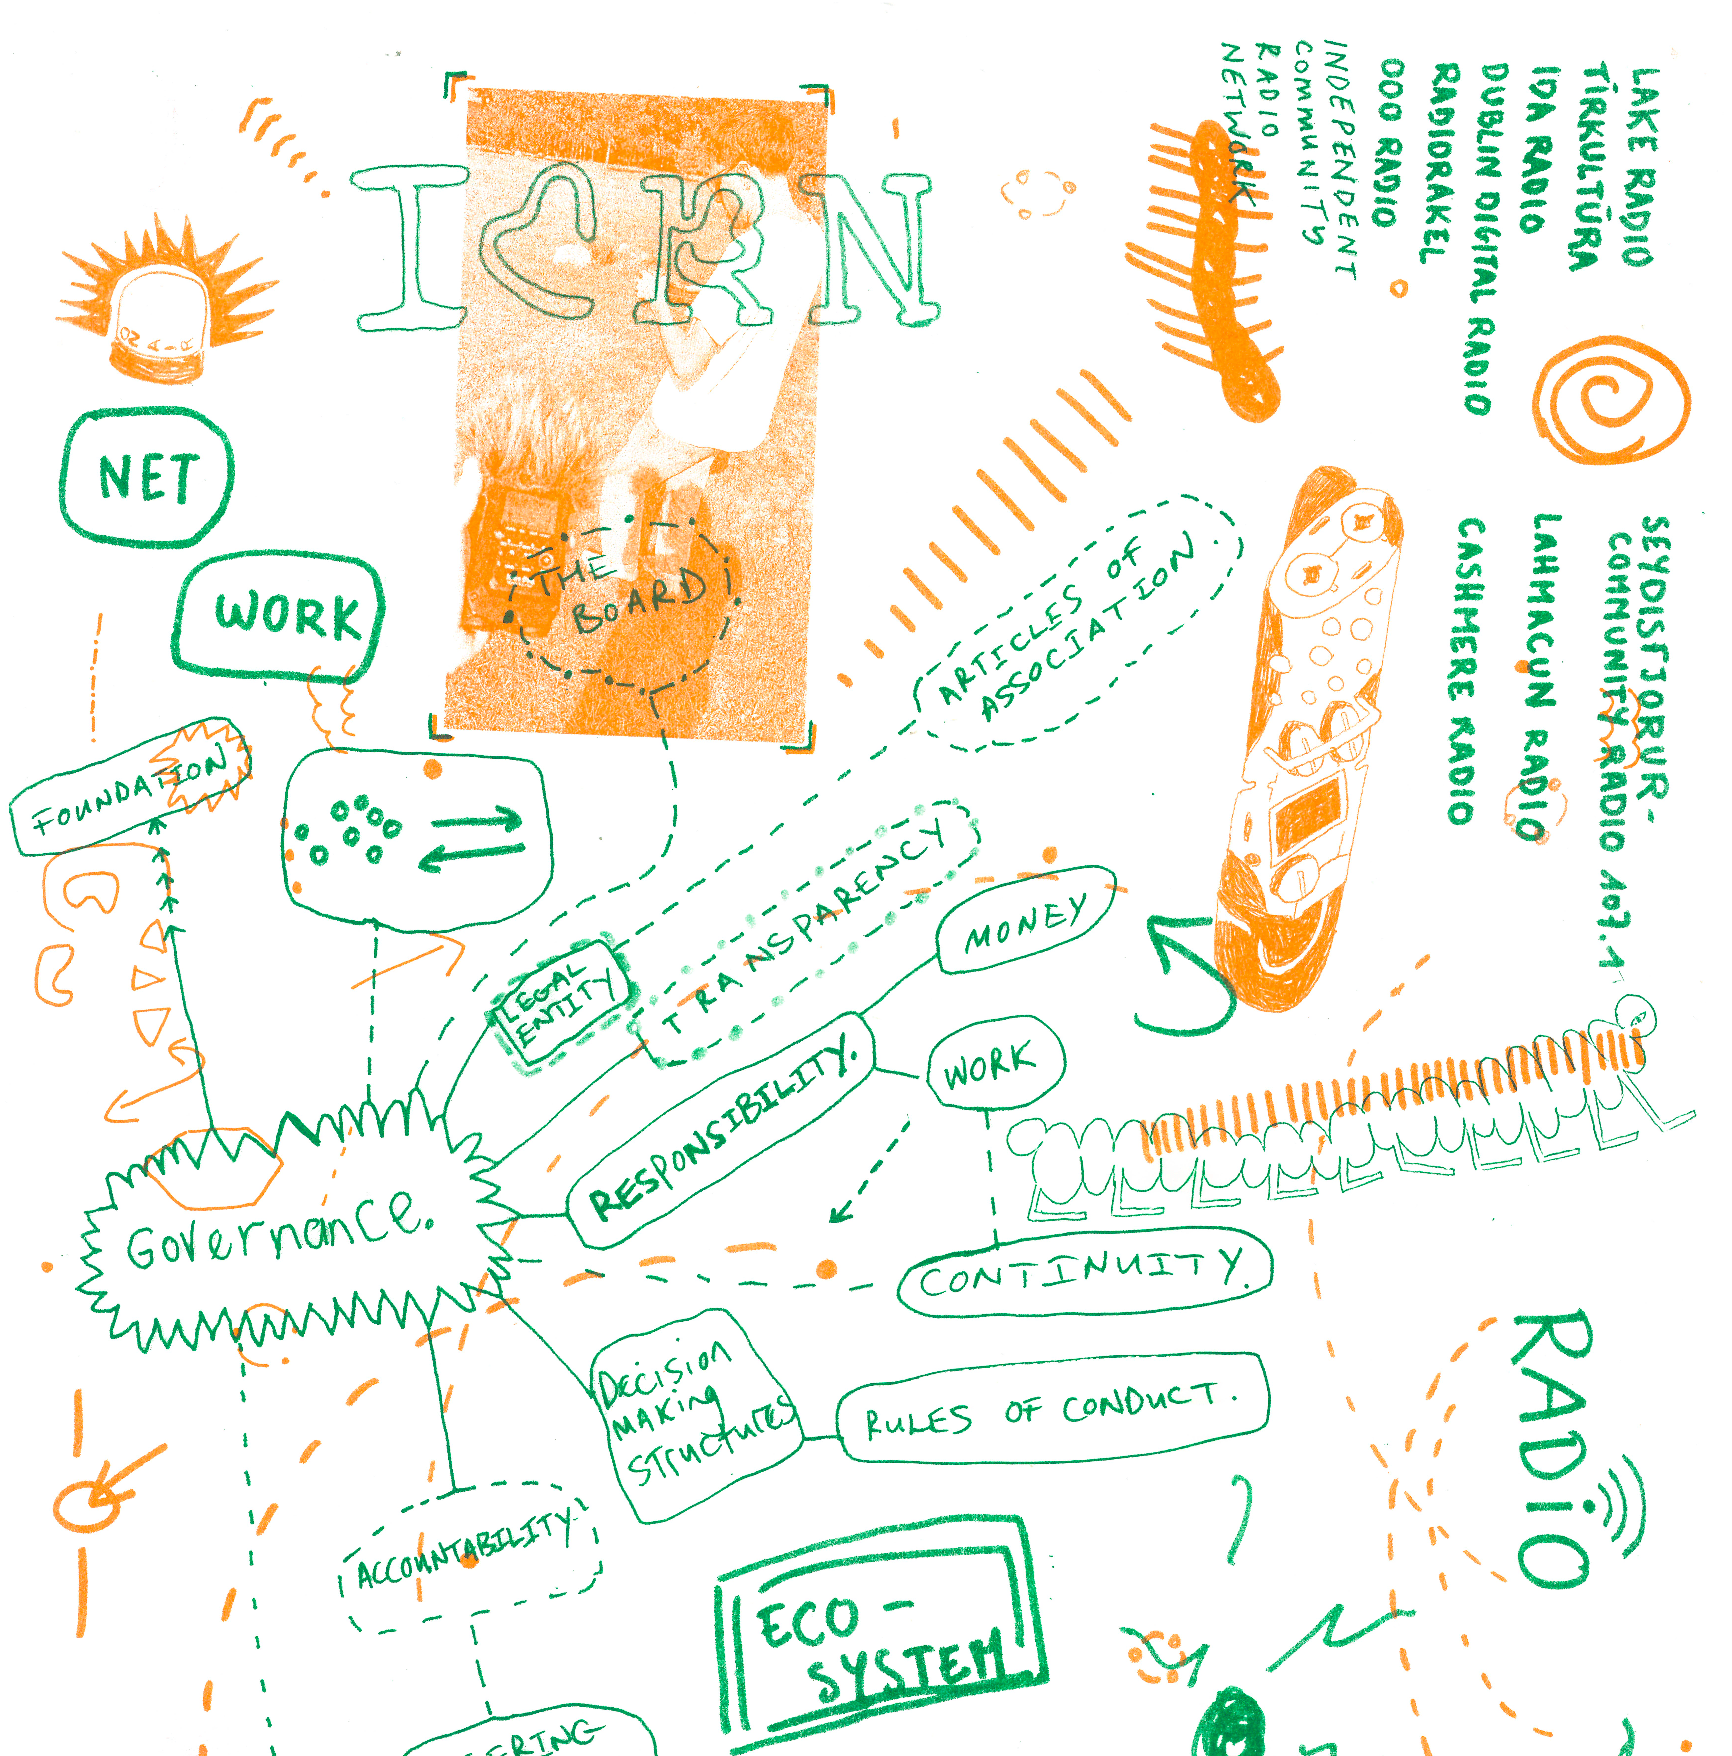 ICRN
INDEPENDENT
COMMUNITY
RADIO
NETWORK
LAKE RADIO
TÍRKULTÚRA
IDA RADIO
DUBLIN DIGITAL RADIO
RADIORAKEL
ODO RADIO
SEYDISFJORUR-
COMMUNITY RADIO 107.1
LAHMACUN RADIO
CASHMERE RADIO
ON AIR
NET
WORK
THE
BOARD
ARTICLES OF
ASSOCIATION.
FOUNDATION
LEGAL
ENTITY
TRANSPARENCY
MONEY
WORK
RESPONSIBILITY.
Governance.
CONTINUITY.
DECISION
MAKING
STructures
RULES OF CONDUCT.
ACCOUNTABILITY.
ECO-
SYSTEM
RADiO